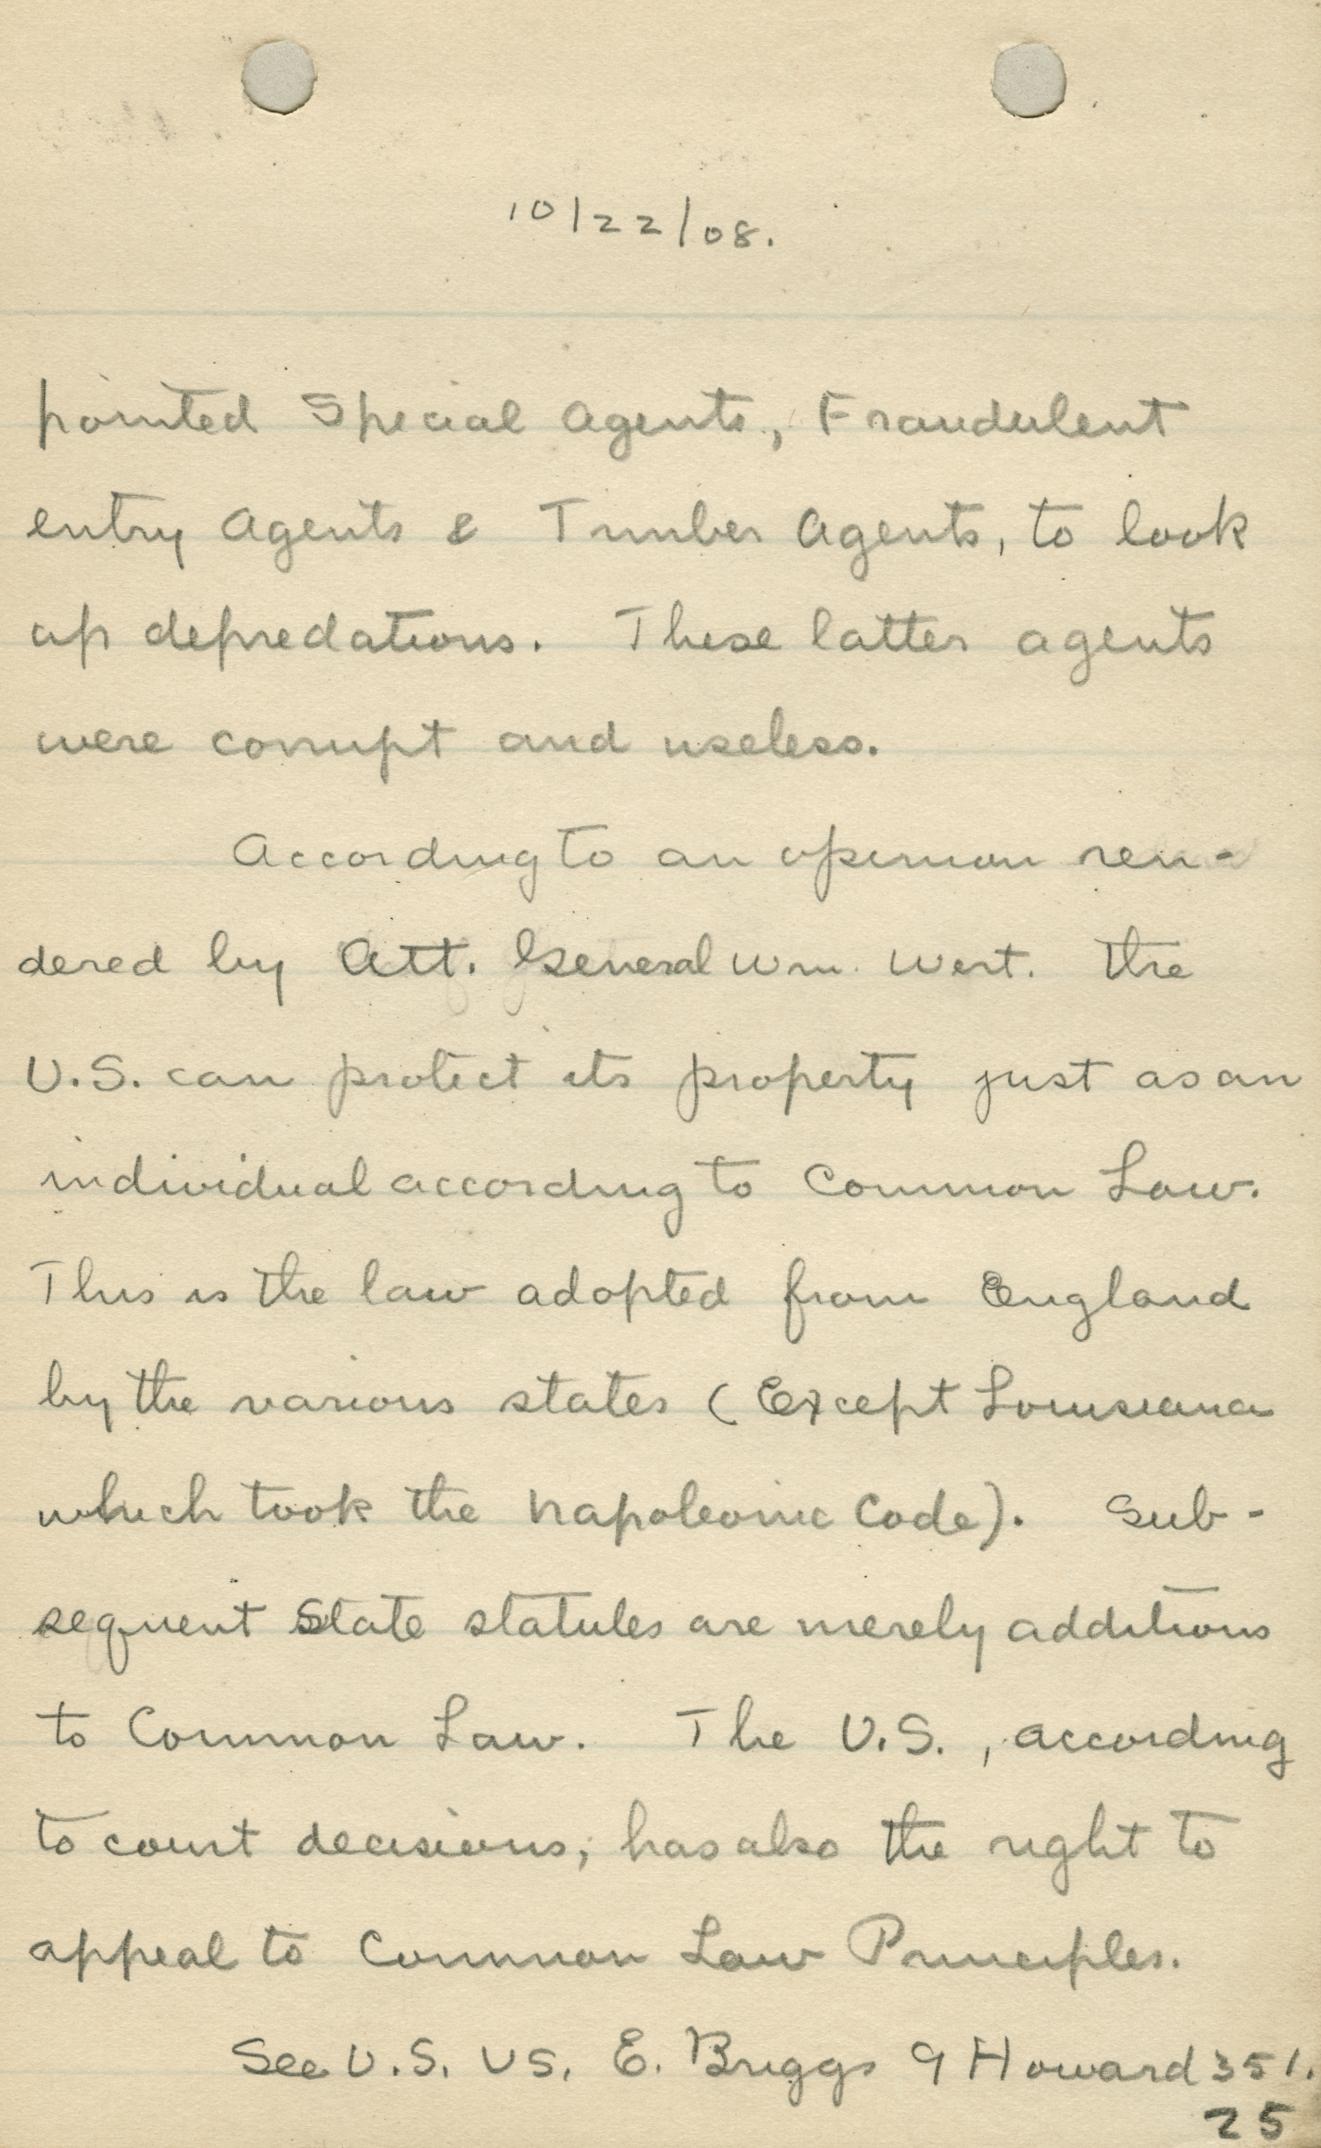 10/22/08.
pointed Special Agents, Fraudulent
entry Agents & Timber Agents, to look
up depredations. These latter agents
were corrupt and useless.
According to an opinion ren-
dered by Att. General Wm. Wert. the
U.S. can protect its property just as an
individual according to Common Law.
This is the law adopted from England
by the various states (Except Louisiana
which took the Napoleonic Code). Sub-
sequent State statutes are merely additions
to Common Law. The U.S., according
to court decisions, has also the right to
appeal to Common Law Principles.
See U.S. vs. E. Briggs 9 Howard 351.
25